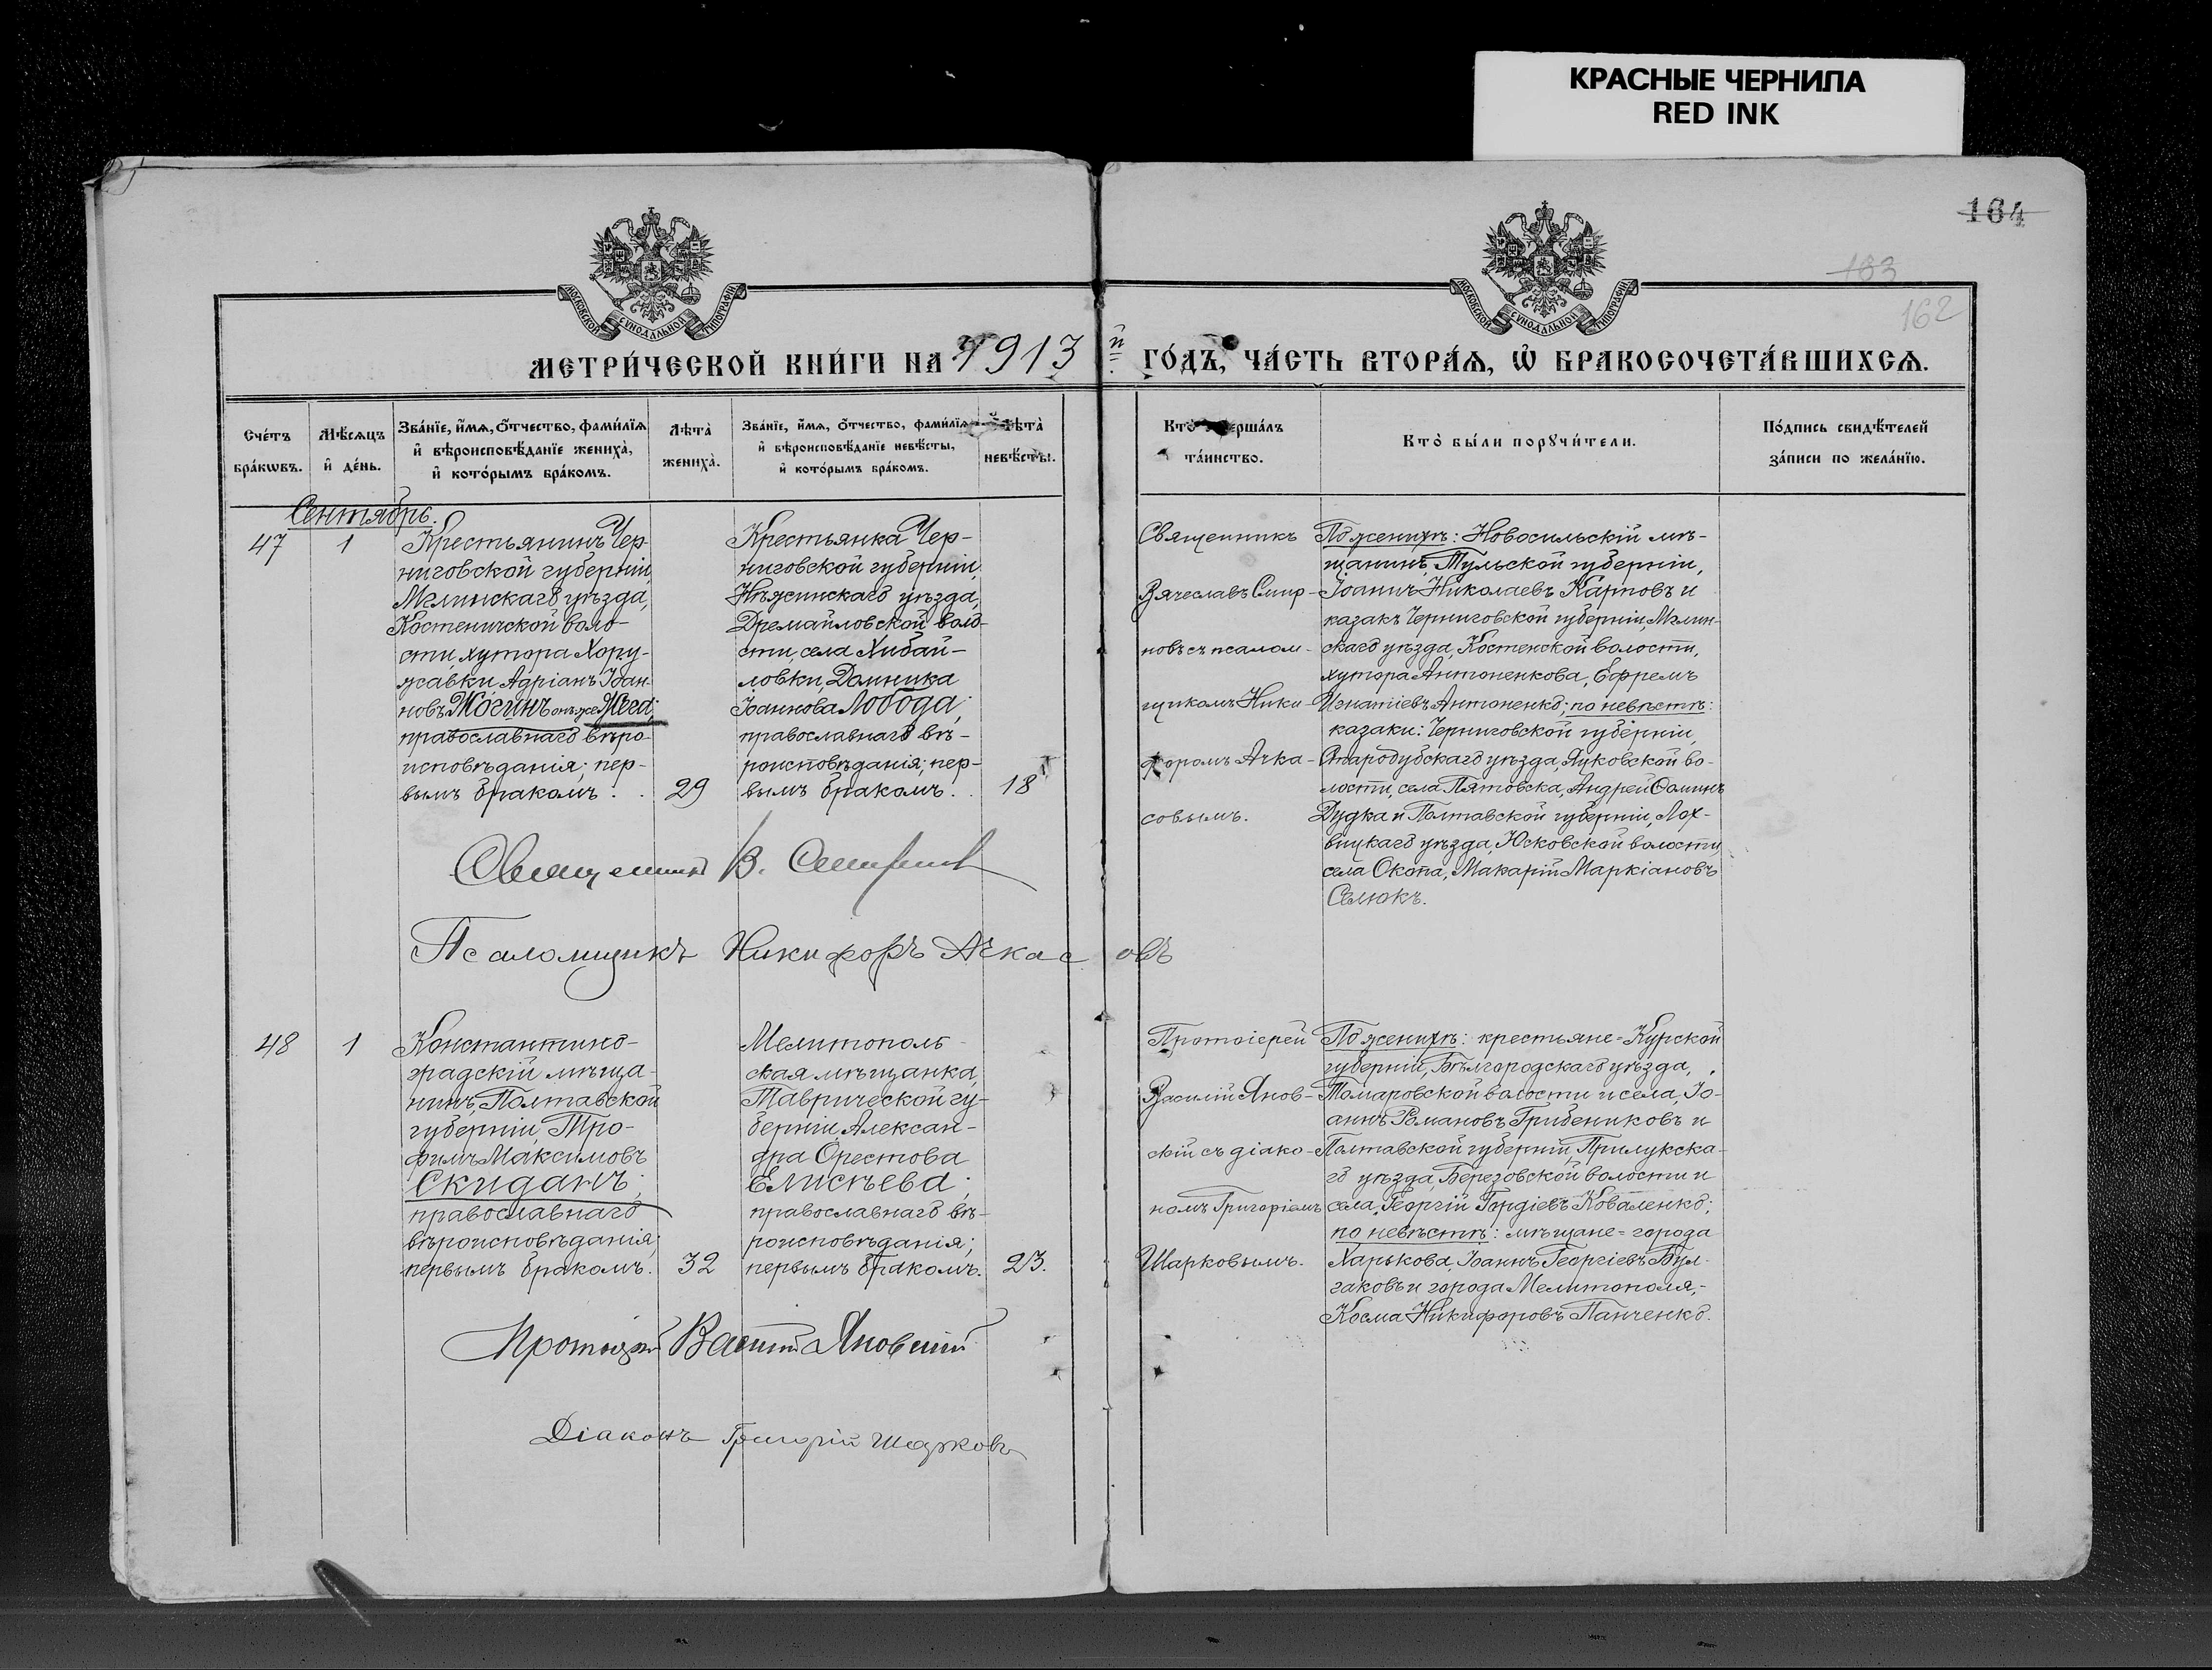 КРАСНЫЕ ЧЕРНИЛА
RED INK
164
183
162
МОСКОВСКОЙ СУНОДАЛЬНОЙ ТИПОГРАФІИ
МОСКОВСКОЙ СУНОДАЛЬНОЙ ТИПОГРАФІИ
МЕТРИ́ЧЕСКОЙ КНИ́ГИ НА 1913 й ГО́ДЪ, ЧА́СТЬ ВТОРА́Ѧ, Ѡ҆ БРАКОСОЧЕТА́ВШИХСѦ.
Сче́тъ
бра́кѡвъ.
Мѣ́сѧцъ
и҆ де́нь.
Зва́нїе, и҆́мѧ, ѻ҆́тчество, фами́лїѧ
и҆ вѣроисповѣ́данїе жениха̀,
и҆ кото́рымъ бра́комъ.
Лѣта̀
жениха̀.
Зва́нїе, и҆́мѧ, ѻ҆́тчество, фами́лїѧ
и҆ вѣроисповѣ́данїе невѣ́сты,
и҆ кото́рымъ бра́комъ.
Лѣта̀
невѣ́сты.
Кто̀ соверша́лъ
та́инство.
Кто̀ бы́ли порꙋчи́тели.
По́дпись свидѣ́телей
за́писи по жела́нїю.
Сентябрь.
47
1
Крестьянинъ Чер-
ниговской губерніи,
Мглинскаго уѣзда,
Костеничской воло-
сти, хутора Хору-
жавки Адріанъ Іоан-
новъ Жогинъ онъ же Жога;
православнаго вѣро-
исповѣданія; пер-
вымъ бракомъ.
29
Крестьянка Чер-
ниговской губерніи,
Нѣжинскаго уѣзда,
Дремайловской воло-
сти, села Хибай-
ловки, Домника
Іоаннова Лобода;
православнаго вѣ-
роисповѣданія; пер-
вымъ бракомъ.
18
Священникъ
Вячеславъ Смир-
новъ съ псалом-
щикомъ Ники-
форомъ Ачка-
совымъ.
По женихѣ: Новосильскій мѣ-
щанинъ, Тульской губерніи,
Іоаннъ Николаевъ Карповъ и
казакъ Черниговской губерніи, Мглин-
скаго уѣзда, Костенской волости,
хутора Антоненкова, Ефремъ
Игнатіевъ Антоненко; по невѣстѣ:
казаки: Черниговской губерніи,
Стародубскаго уѣзда, Яуковской во-
лости, села Пятовска, Андрей Ѳоминъ
Дудка и Полтавской губерніи, Лох-
вицкаго уѣзда, Юсковской волости
села Окопа, Макарій Маркіановъ
Селюкъ.
Священникъ В. Смирновъ
Псаломщикъ Никифоръ Ачкасовъ
48
1
Константино-
градскій мѣща-
нинъ, Полтавской
губерніи, Тро-
фимъ Максимовъ
Скиданъ;
православнаго
вѣроисповѣданія;
первымъ бракомъ.
32
Мелитополь-
ская мѣщанка,
Таврической гу-
берніи Алексан-
дра Орестова
Елисѣева;
православнаго вѣ-
роисповѣданія;
первымъ бракомъ.
23.
Протоіерей
Василій Янов-
скій съ діако-
номъ Григоріемъ
Шарковымъ.
По женихѣ: крестьяне=Курской
губерніи, Бѣлгородскаго уѣзда,
Томаровской волости и села, Іо-
аннъ Романовъ Грибениковъ и
Полтавской губерніи, Прилукска-
го уѣзда, Березовской волости и
села, Георгій Гордіевъ Коваленко;
по невѣстѣ: мѣщане=города
Харькова, Іоаннъ Георгіевъ Бул-
гаковъ и города Мелитополя,-
Косма Никифоровъ Панченко.
Протоіерей Василій Яновскій
Діаконъ Григорій Шарковъ